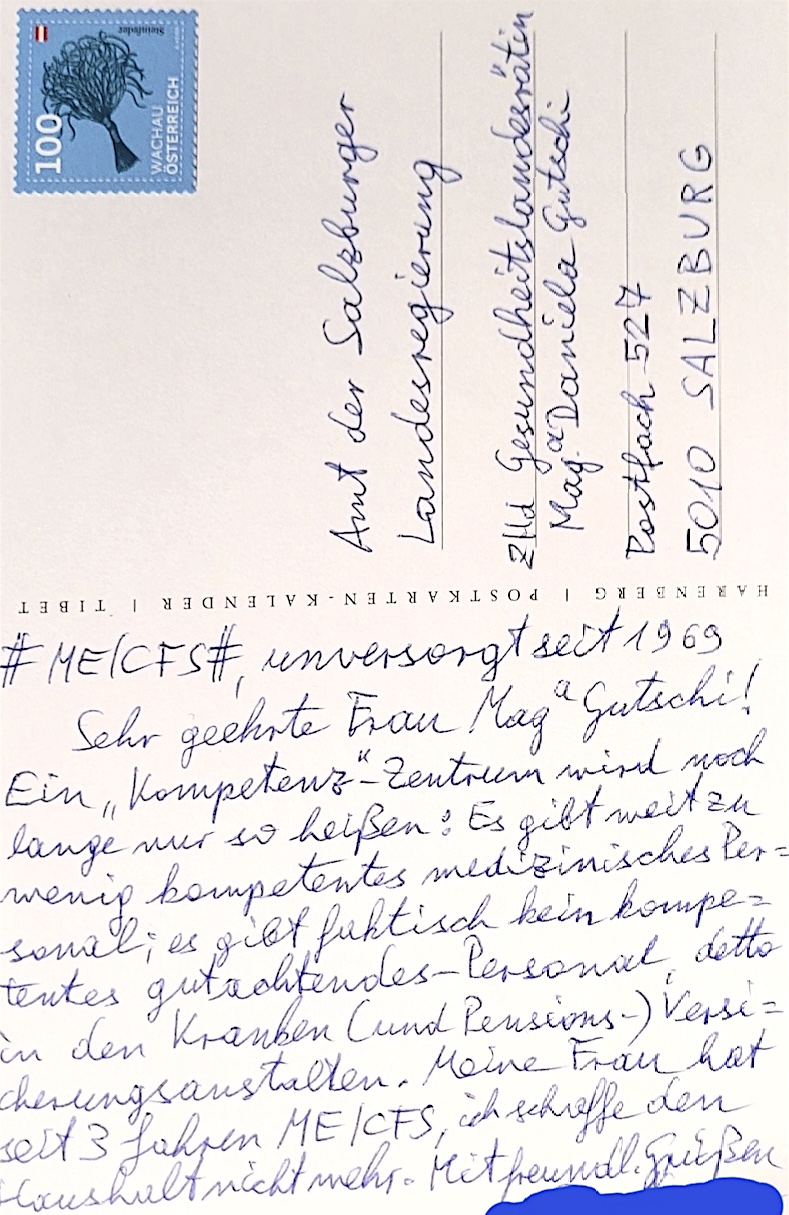 Steinfeder
100
WACHAU
ÖSTERREICH
Amt der Salzburger
Landesregierung
zHd Gesundheitslandesrätin
Mag.a Daniela Gutschi
Postfach 527
5010 SALZBURG
HARENBERG | POSTKARTEN-KALENDER | TIBET
#ME/CFS#, unversorgt seit 1969
Sehr geehrte Frau Mag a Gutschi!
Ein „Kompetenz“-Zentrum wird noch
lange nur so heißen: Es gibt weit zu
wenig kompetentes medizinisches Per=
sonal; es gibt faktisch kein kompe=
tentes gutachtendes-Personal, detto
in den Kranken (und Pensions-) Versi=
cherungsanstalten. Meine Frau hat
seit 3 Jahren ME/CFS, ich schaffe den
Haushalt nicht mehr. Mit freundl. Grüßen